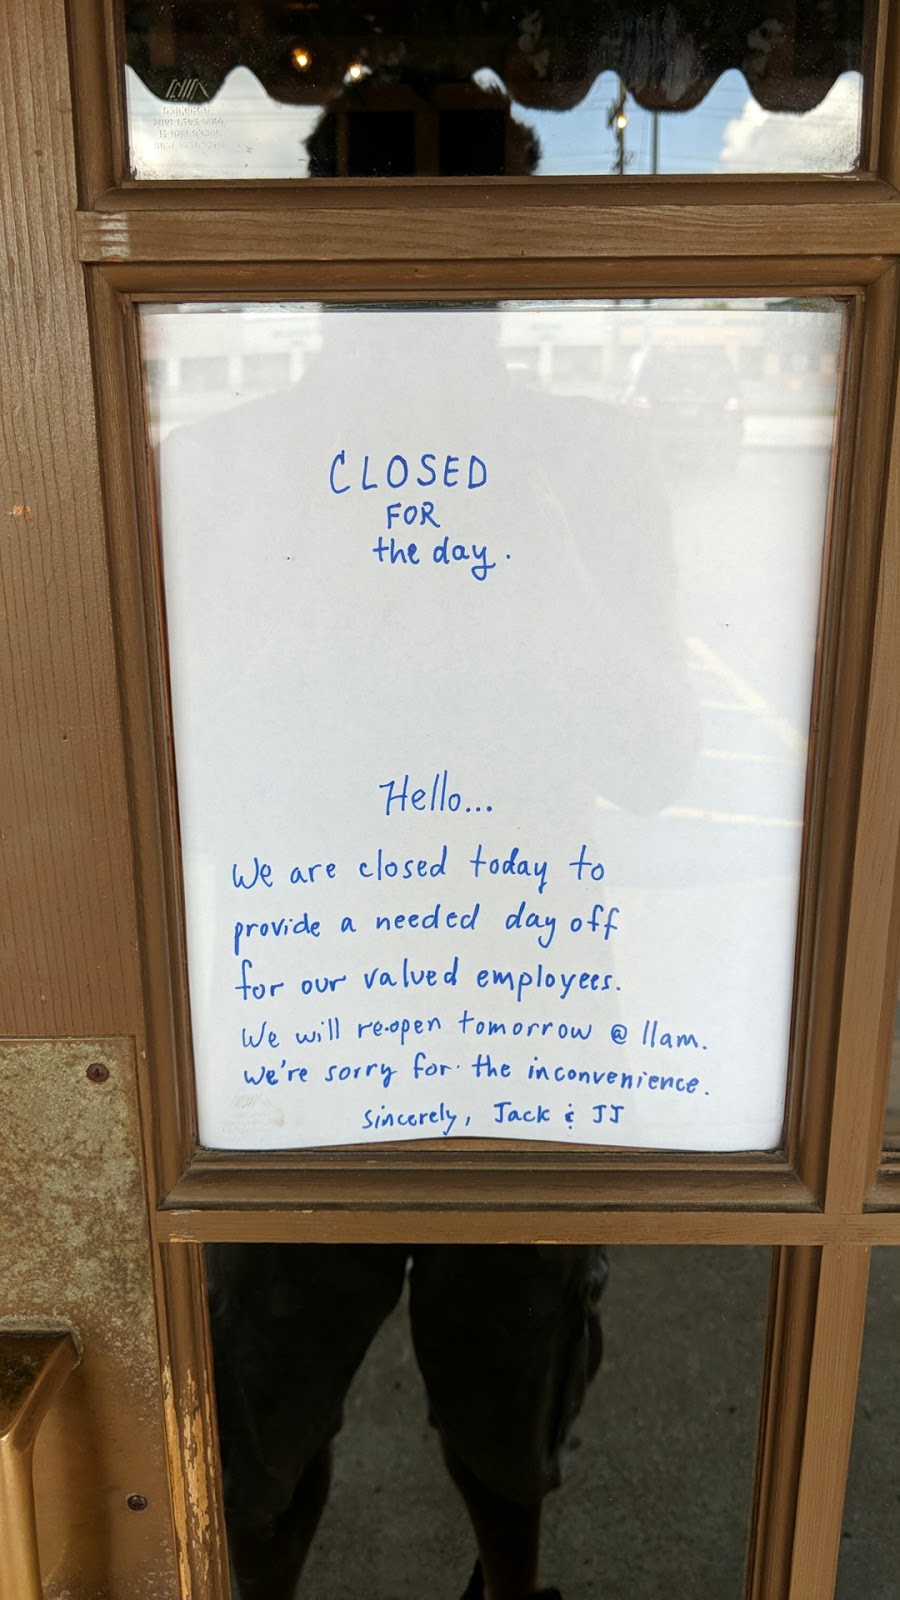 CLOSED
FOR
the day.
Hello...
We are closed today to
provide a needed day off
for our valued employees.
We will re-open tomorrow @ 11am.
We're sorry for the inconvenience.
Sincerely, Jack & JJ